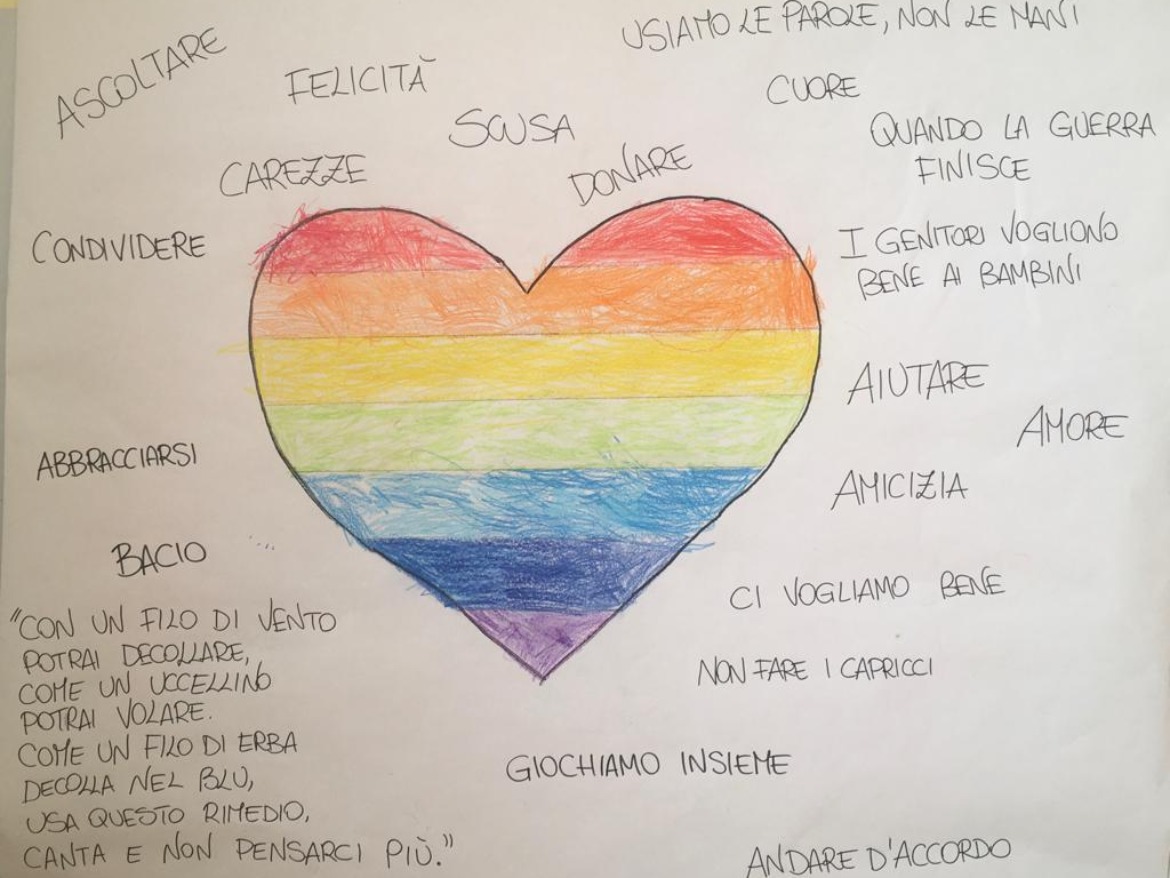 USIAMO LE PAROLE, NON LE MANI
ASCOLTARE
FELICITÀ
CUORE
SCUSA
QUANDO LA GUERRA
FINISCE
CAREZZE
DONARE
CONDIVIDERE
I GENITORI VOGLIONO
BENE AI BAMBINI
AIUTARE
AMORE
ABBRACCIARSI
AMICIZIA
BACIO
CI VOGLIAMO BENE
"CON UN FILO DI VENTO
POTRAI DECOLLARE,
COME UN UCCELLINO
POTRAI VOLARE.
COME UN FILO DI ERBA
DECOLLA NEL BLU,
USA QUESTO RIMEDIO,
CANTA E NON PENSARCI PIÙ."
NON FARE I CAPRICCI
GIOCHIAMO INSIEME
ANDARE D'ACCORDO